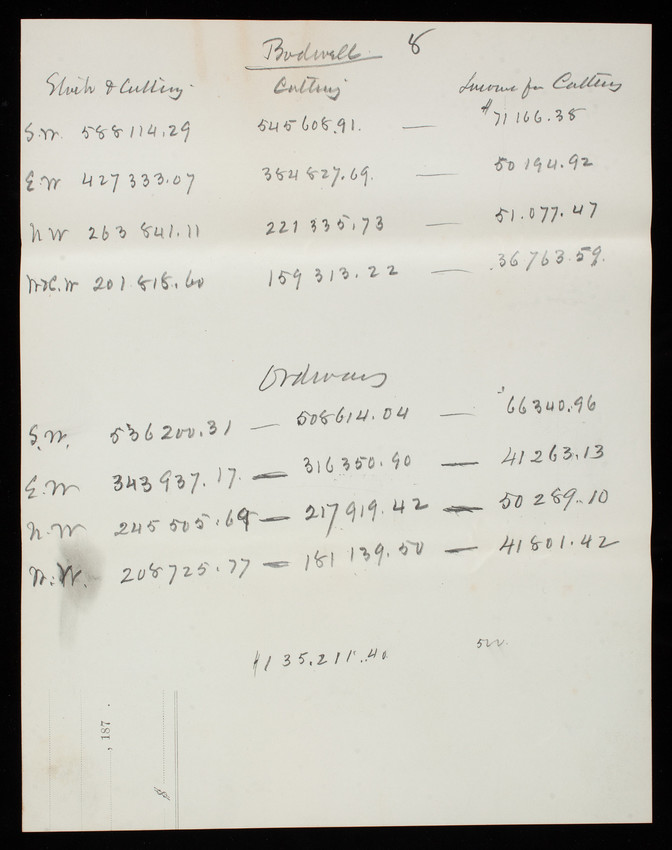 Bodwell 8
Stock & Cutting Cutting for Cutting
S.W. 588114.29 545608.91. — $71166.38
E.W 427333.07 384827.69. — 50194.92
N W 263841.11 221335.73 — 51.077.47
W 201818.60 159313.22 — 36763.59.
Ordway
S.W. 536200.31 — 508614.04 — $66340.96
E.W 343937.17. — 316350.90 — 41263.13
N.W 245505.69 — 217919.42 — 50289.10
W. 208725.77 — 181139.50 — 41801.42
$135.211.40
, 187 .
$